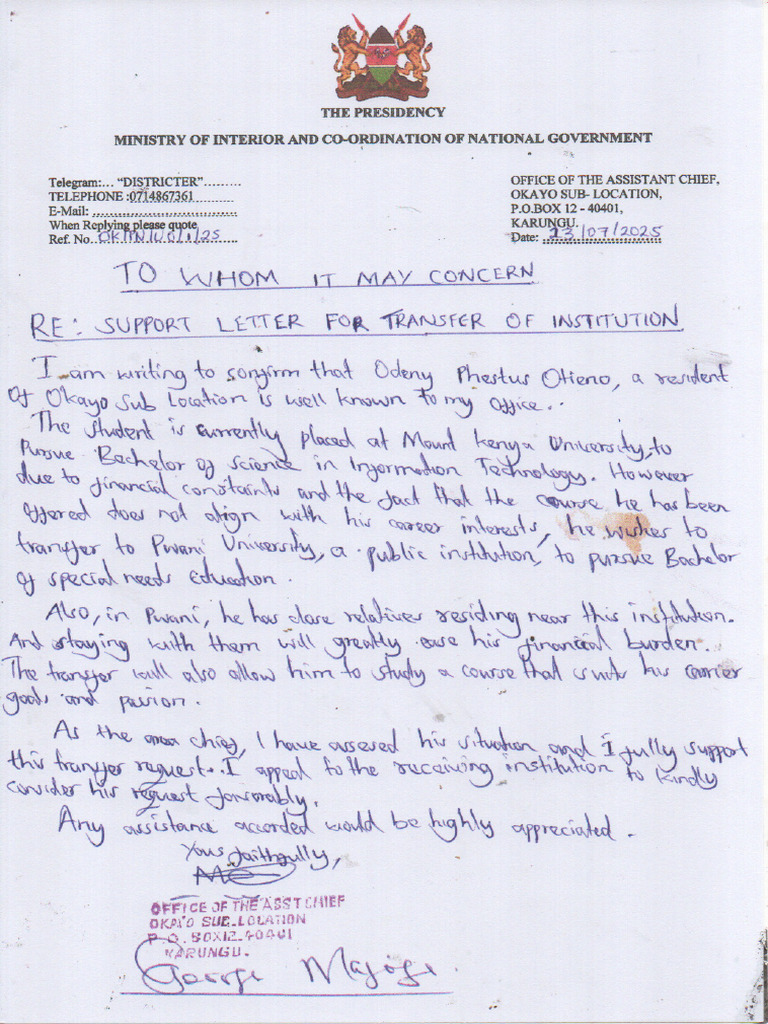 THE PRESIDENCY
MINISTRY OF INTERIOR AND CO-ORDINATION OF NATIONAL GOVERNMENT
Telegram:... "DISTRICTER".........
TELEPHONE :0714867361
E-Mail: ................................
When Replying please quote
Ref. No.
OFFICE OF THE ASSISTANT CHIEF,
OKAYO SUB- LOCATION,
P.O.BOX 12 - 40401,
KARUNGU.
Date: 23/07/2025
TO WHOM IT MAY CONCERN
RE: SUPPORT LETTER FOR TRANSFER OF INSTITUTION
I am writing to confirm that Odeny Phestus Otieno, a resident
Of Okayo Sub Location is well known to my office.
The student is currently placed at Mount Kenya University, to
Pursue Bachelor of science in Information Technology. However
due to financial constaints and the fact that the course he has been
offered does not align with his career interests, he wishes to
transfer to Pwani University, a public institution, to pursue Bachelor
of special needs Education.
Also, in Pwani, he has close relatives residing near this institution.
And staying with them will greatly ease his financial burden.
The transfer will also allow him to study a course that suits his carrier
goals and passion.
As the area chief, I have assesed his situation and I fully support
this transfer request. I appeal to the receiving institution to kindly
consider his request favorably.
Any assistance accorded would be highly appreciated.
Yours faithfully,
OFFICE OF THE ASST CHIEF
OKAYO SUB-LOCATION
P.O. BOX12-40401
KARUNGU.
George